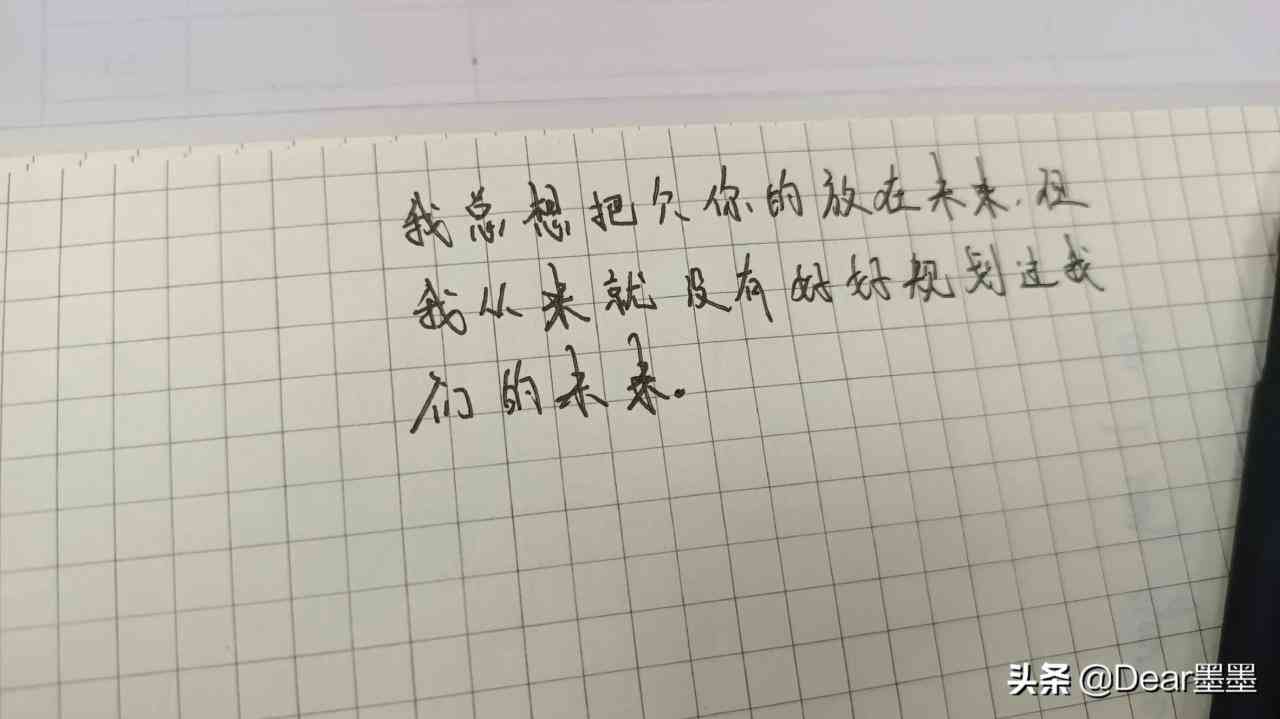 我总想把欠你的放在未来.但
我从来就没有好好规划过我
们的未来.
头条 @Dear墨墨